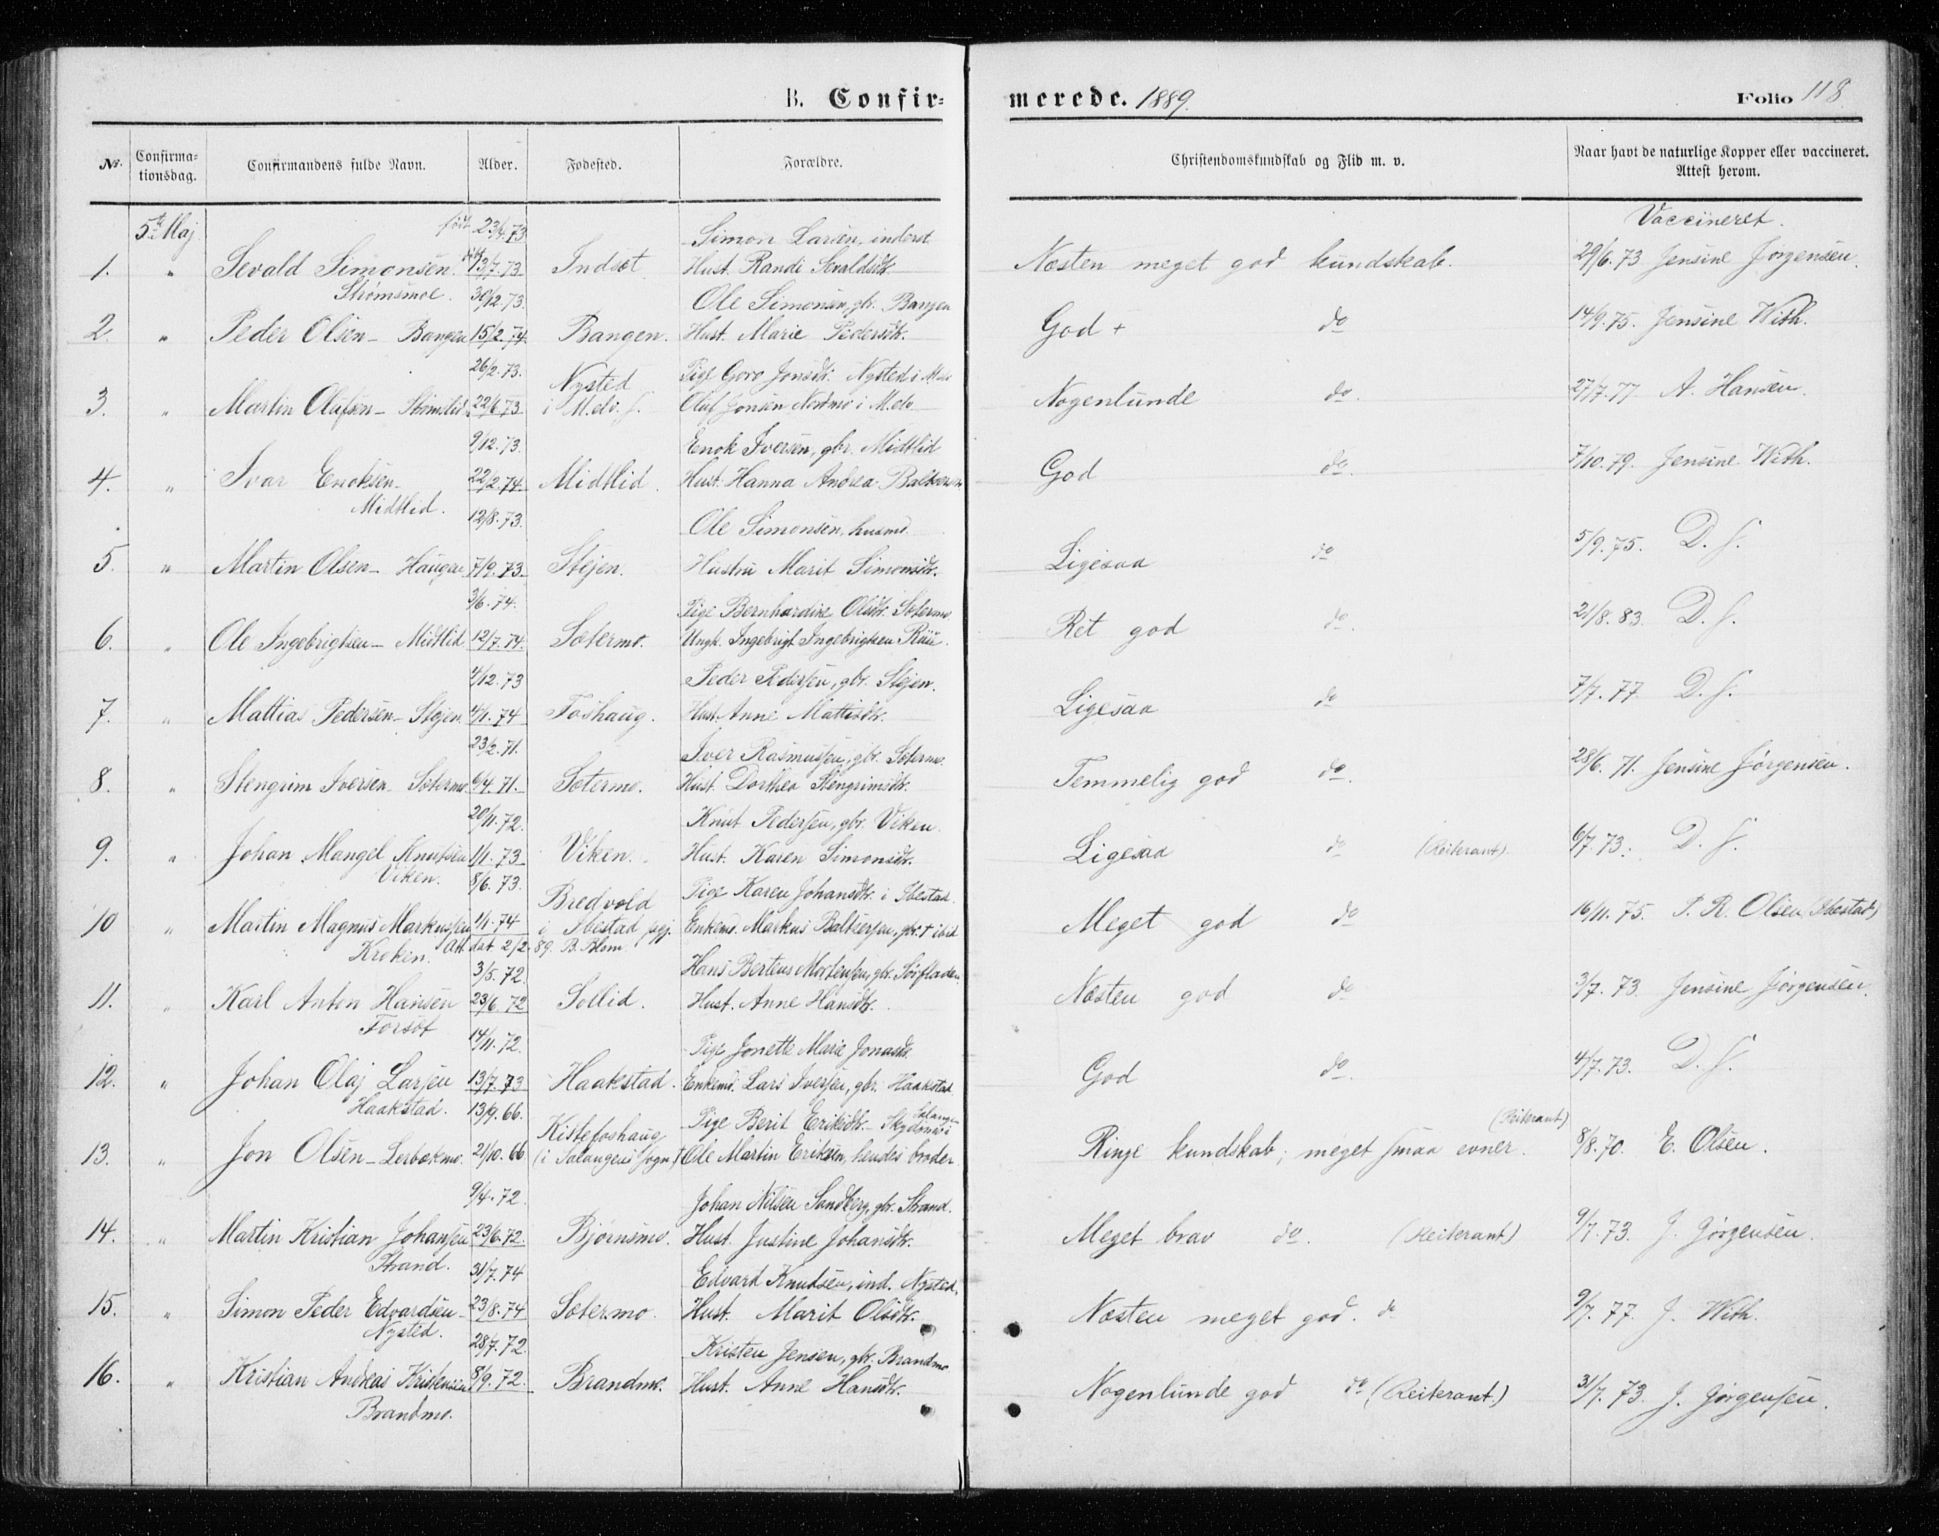 B. Confir-
merede. 1889.
Folio 118
Nr.
Confirma-
tionsdag.
Confirmandens fulde Navn.
Alder.
Fødested.
Forældre.
Christendomskundskab og Flid m. v.
Naar havt de naturlige Kopper eller vaccineret.
Attest herom.
5te Maj
født 23/4.73
Simon Larsen, inderst
Vaccineret.
1. " Sevald Simonsen 13/7.73 Indset Hust. Randi Sevaldsdtr. Næsten meget god kundskab. 29/6.73 Jensine Jørgensen.
Strømsmoe. 30/12.73. Ole Simonsen, gbr. Bangen
2. " Peder Olsen - Bangen 15/2.74. Bangen. Hust. Marie Pedersdtr. God + do 14/9.75. Jensine With.
26/2.73. Nysted Pige Goro Jonsdtr. Nysted i
3. " Martin Olufsen - 22/6.73 i Oluf Jonsen Nordmo i Nogenlunde do. 27/7.77 A. Hansen.
9/12.73. Enok Iversen, gbr. Midtlid
4. " Ivar Enoksen 22/2.74. Midtlid. Hust. Hanna Andrea God do. 7/10.79. Jensine With.
Midtlid. 12/8.73. Ole Simonsen, husmd
5. " Martin Olsen - Haugen 7/9.73 Stejen. Hustru Marit Simonsdtr. Ligesaa do 5/9.75. D. S.
3/6.74. Pige Bernhardine Olsdtr. Sætermo
6. " Ole Ingebrigtsen - Midtlid 12/7.74. Sætermo. Ungk. Ingebrigt Ingebrigtsen Ret god do. 21/8.83. D. S.
4/12.73 Peder Pedersen, gbr. Stejen.
7. " Mattias Pedersen - Stejen 4/1.74 Foshaug. Hust. Anne Mattisdtr. Ligesaa do 7/7.77 D. S.
23/2.71. Iver Rasmussen, gbr. Sætermo.
8. " Stengrim Iversen Sætermo. 6/4.71. Sætermo. Hust. Dorthea Stengrimsdtr. Temmelig god do. 28/6.71. Jensine Jørgensen.
20/11.72. Knut Pedersen, gbr. Viken.
9. " Johan Mangel Knutsen 1/1.73 Viken. Hust. Karen Simonsdtr. Ligesaa do (Reiterant). 6/7.73. D. S.
Viken. 8/6.73. Bredvold Pige Karen Johansdtr. i Ibestad.
10 " Martin Magnus Markussen 1/1.74 i Ibestad pgj. Enkemd. Markus Baltsersen, gbr. Meget god do 16/11.75. P. R. Olsen (Ibestad)
Kroken. Att. dat. 2/2.89. B. Blom
3/5.72. Hans Berteus Mortensen, gbr. Sørfladen
11. " Karl Anton Hansen 23/6.72 Sollid. Hust. Anne Hansdtr. Næsten god do 3/7.73. Jensine Jørgensen.
Forsøt 14/11.72. Pige Jonette Marie Jonasdtr.
12. " Johan Olaj Larsen 13/7.73 Haakstad. Enkemd. Lars Iversen, gbr. Haakstad God do. 4/7.73. D. S.
Haakstad. 13/9.66. Kistefoshaug Pige Berit Eriksdtr. Salangen (Reiterant)
13. " Jon Olsen - Lerbækmo. 21/10.66 (i Salangens sogn) Ole Martin Eriksen, hendes broder Ringe kundskab; meget smaa evner. 8/8.70. E. Olsen.
9/4.72 Johan Nilsen Sandberg, gbr. Strand.
14. " Martin Kristian Johansen 23/6.72. Bjørnsmo. Hust. Justine Johansdtr. Meget brav do. (Reiterant) 9/7.73. J. Jørgensen.
Strand. 31/7.74 Edvard Knudsen, ind. Nysted.
15. " Simon Peder Edvardsen 23/8.74 Sætermo. Hust. Marit Olsdtr. Næsten meget god. do 9/7.77. J. With.
Nysted. 28/7.72. Kristen Jensen, gbr. Brandmo
16. " Kristian Andreas Kristensen 8/9.72. Brandmo. Hust. Anne Hansdtr. Nogenlunde god do (Reiterant.) 31/7.73. J. Jørgensen.
Brandmo.